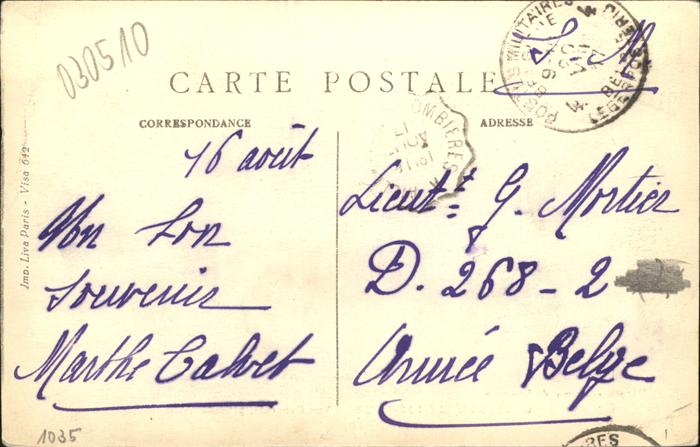 030510
S. M.
CARTE POSTALE
CORRESPONDANCE
ADRESSE
16 août
Un bon
Souvenir
Marthe Calvet
Lieut.t G. Mortier
D. 268 - 2
Armée Belge
Imp. Liva Paris - Visa 642
1035
POSTES MILITAIRES
OMBIERES